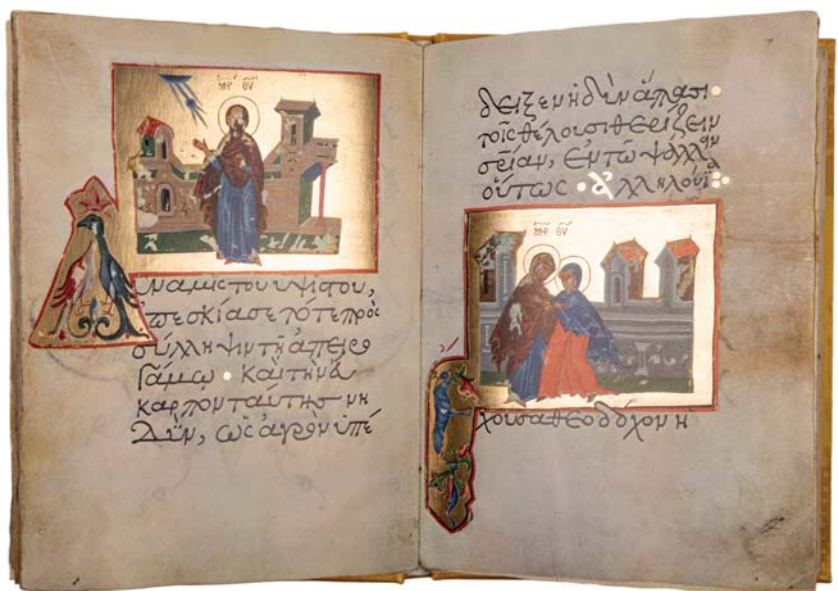 ΜΡ ΘΥ
Δύναμις του υψίστου,
ἐπεσκίασε τότε πρὸς
σύλληψιν τῆ ἀπειρο
γάμω · Καὶ τὴν ἔυ
καρπον ταύτης νη
δὺν, ὡς ἀγρὸν ὑπέ
δειξεν ἡδὺν ἅπασι
τοῖς θέλουσι θερίζειν
σρίαν, ἐν τῶ ψάλλειν
οὕτως · ἀλληλούϊα
ΜΡ ΘΥ
Ἔχουσα θεοδόχον ἡ